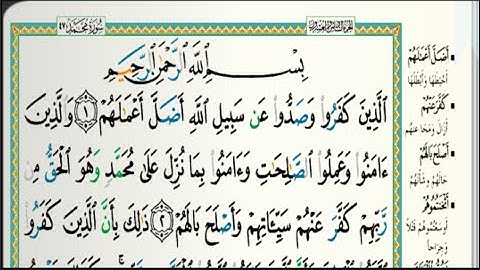 سورة محمد
بِسْمِ اللَّهِ الرَّحْمَٰنِ الرَّحِيمِ
الَّذِينَ كَفَرُوا وَصَدُّوا عَن سَبِيلِ اللَّهِ أَضَلَّ أَعْمَٰلَهُمْ ۝١ وَالَّذِينَ
ءَامَنُوا وَعَمِلُوا الصَّٰلِحَٰتِ وَءَامَنُوا بِمَا نُزِّلَ عَلَىٰ مُحَمَّدٍ وَهُوَ الْحَقُّ مِن
رَّبِّهِمْ كَفَّرَ عَنْهُمْ سَيِّئَاتِهِمْ وَأَصْلَحَ بَالَهُمْ ۝٢ ذَٰلِكَ بِأَنَّ الَّذِينَ كَفَرُوا
أَضَلَّ أَعْمَٰلَهُمْ
أَحْبَطَهَا وَأَبْطَلَهَا
كَفَّرَ عَنْهُمْ
أَزَالَ وَمَحَا عَنْهُم
أَصْلَحَ بَالَهُمْ
حَالَهُمْ وَشَأْنَهُمْ
أَثْخَنتُمُوهُمْ